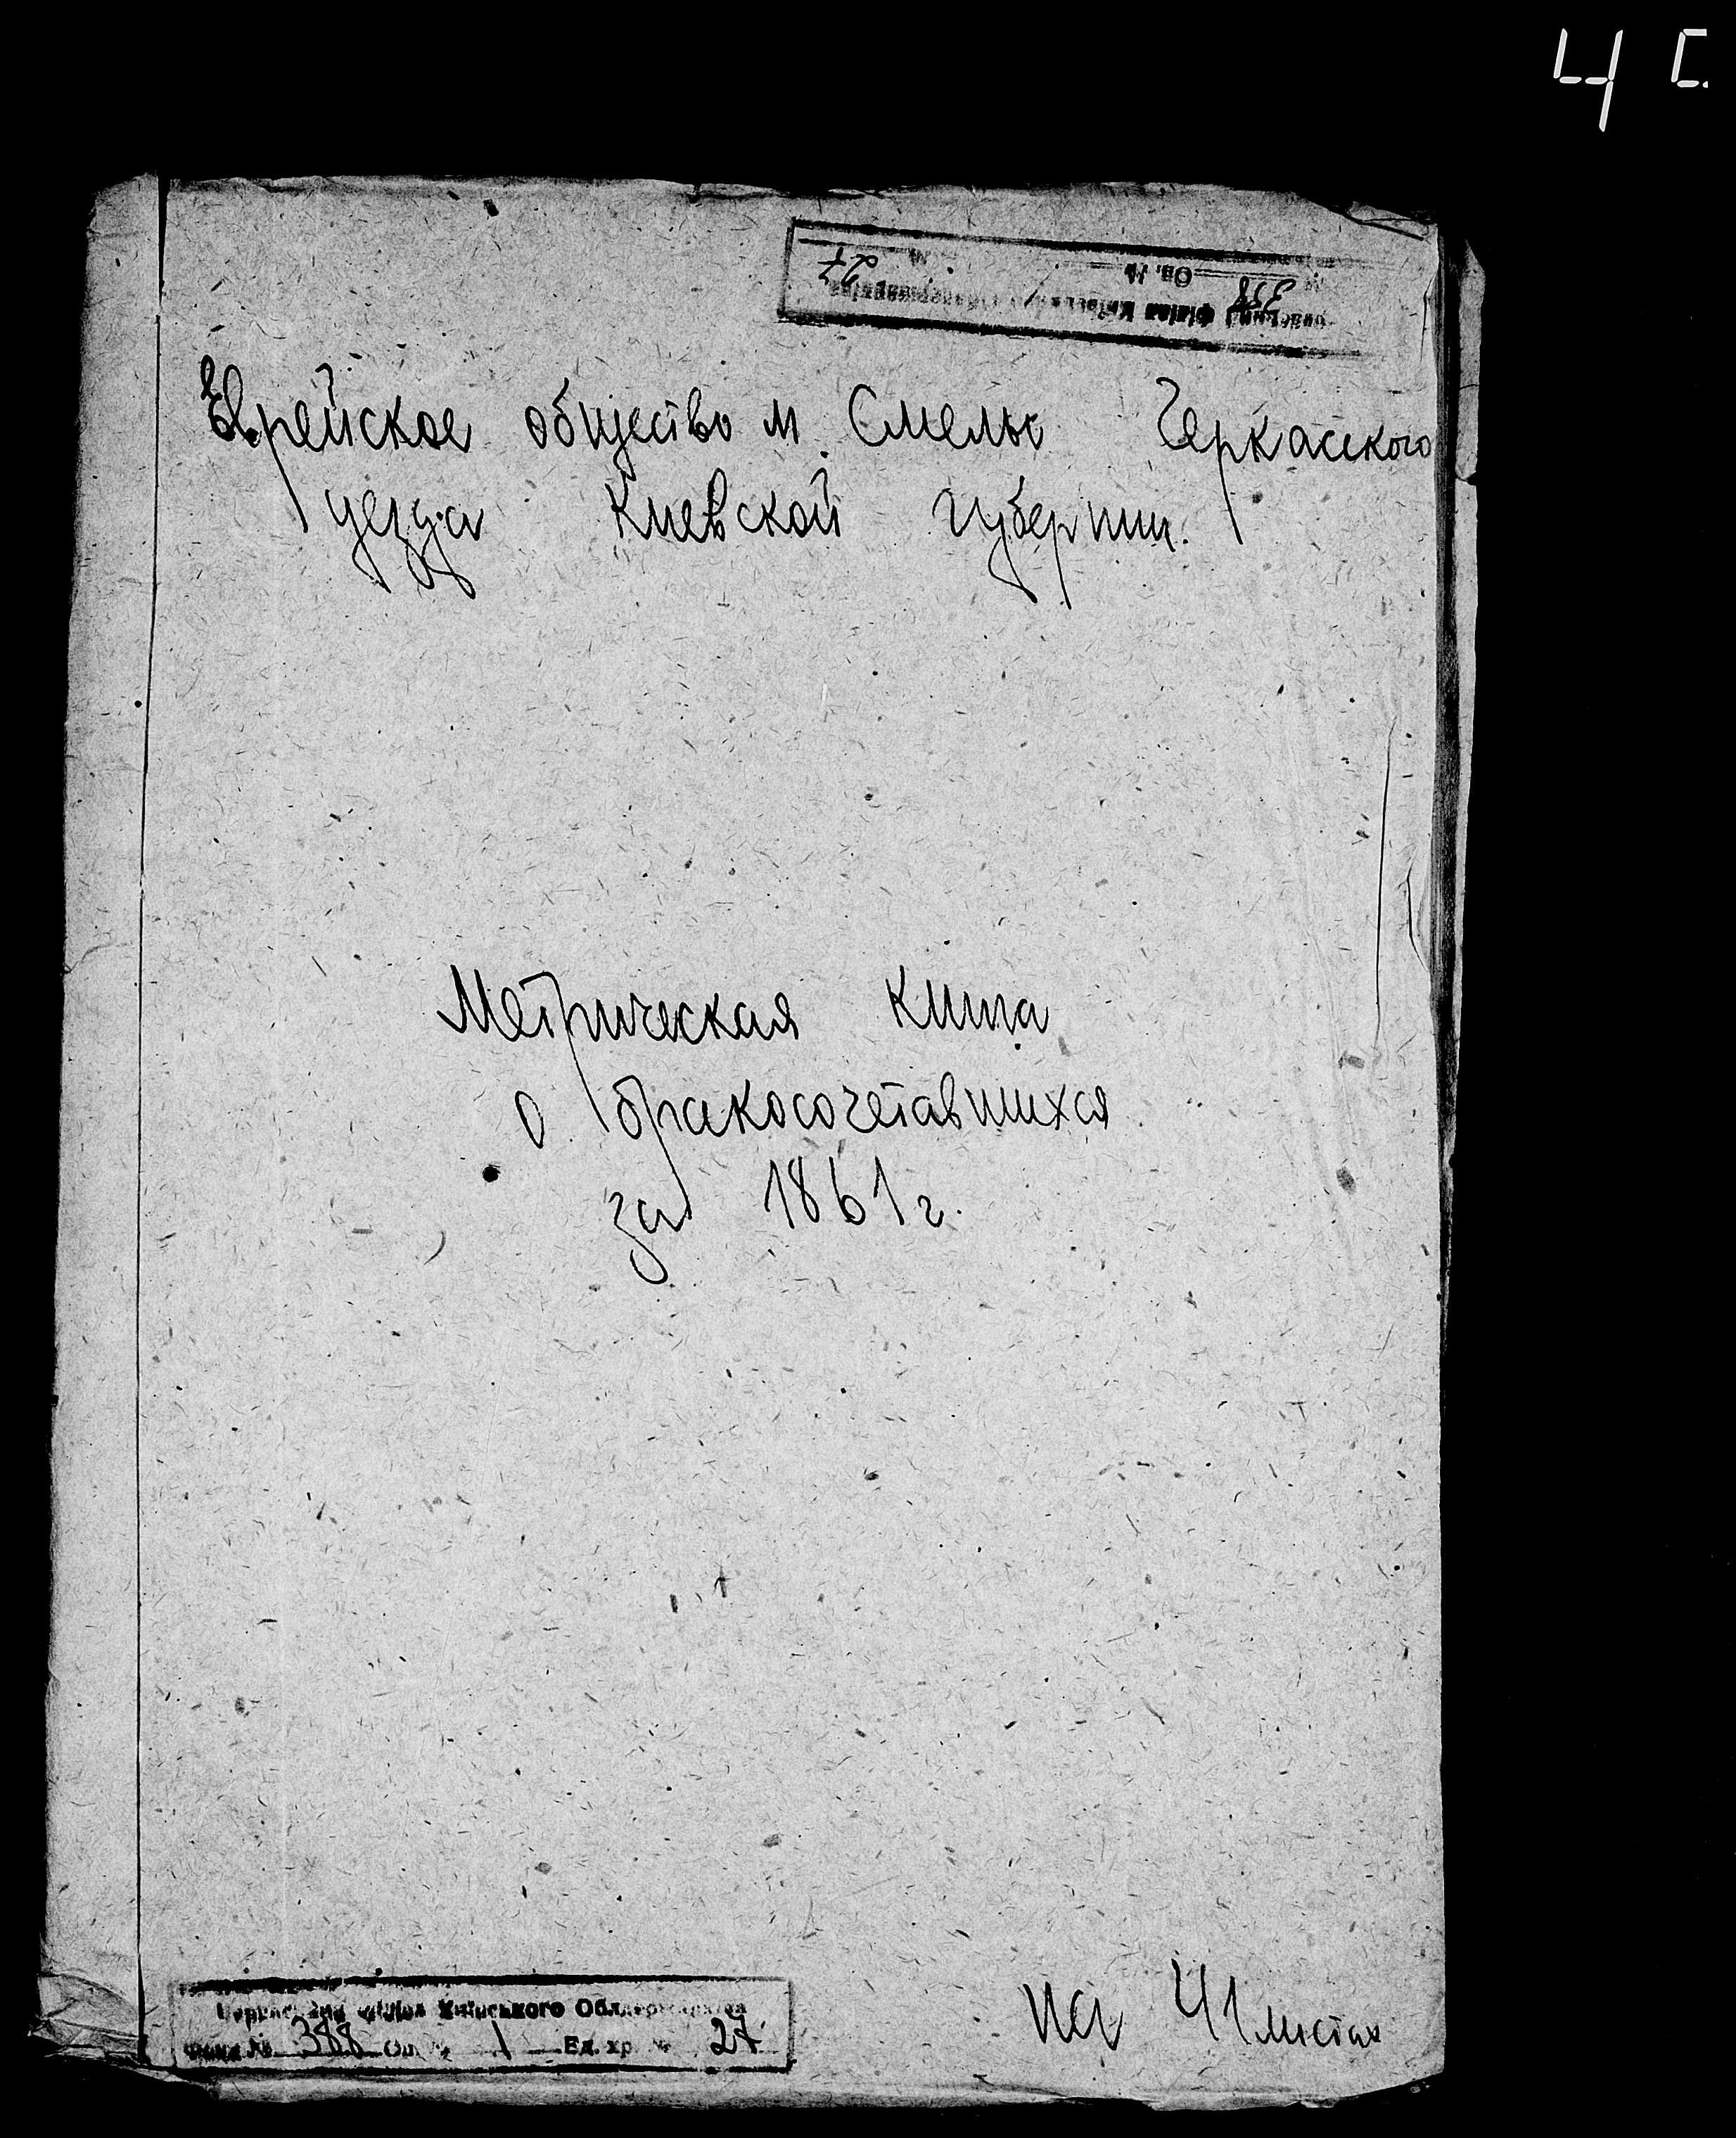 Ч С.
388
Оп. №
27
Еврейское общество м. Смелы Черкасского
уезда Киевской губернии.
Метрическая книга
о бракосочетавшихся
за 1861 г.
філіал Київського Облдержархіва
Фонд № 388 Оп. № 1 Ед. хр. № 27
на 41 листах